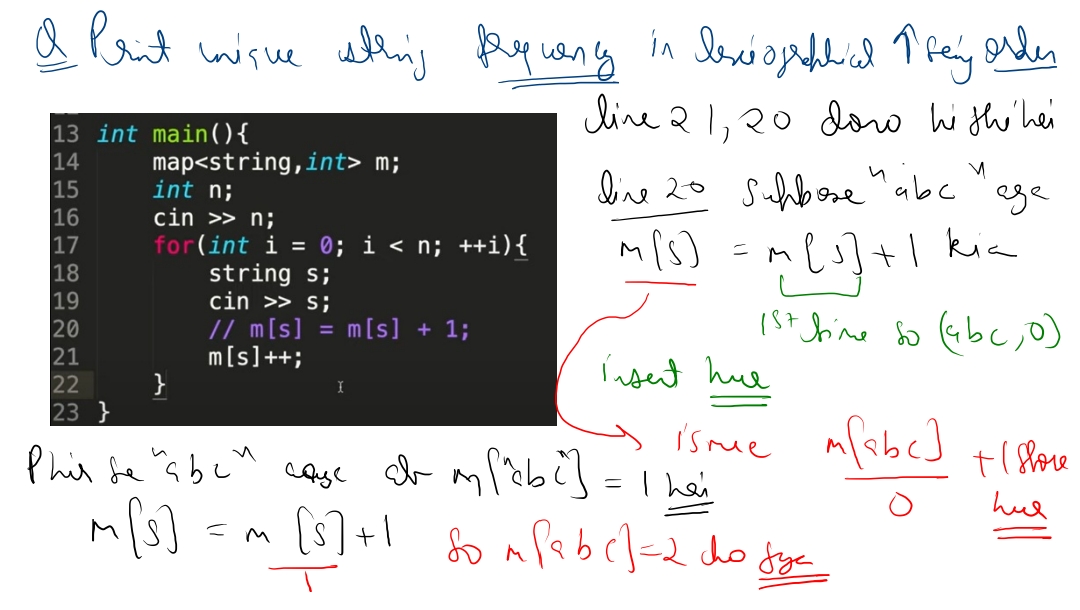 Q Print unique string frequency in lexiographical ↑sing order
13 int main(){
14 map<string,int> m;
15 int n;
16 cin >> n;
17 for(int i = 0; i < n; ++i){
18 string s;
19 cin >> s;
20 // m[s] = m[s] + 1;
21 m[s]++;
22 }
23 }
line 21, 20 dono hi shi hai
line 20 suppose "abc" aya
m[s] = m[s] + 1 kia
1st time so (abc, 0)
insert hua
isme m[abc] + 1 store
0 hua
Phir se "abc" aaya ab m["abc"] = 1 hai
m[s] = m[s] + 1
1
So m[abc] = 2 ho gya